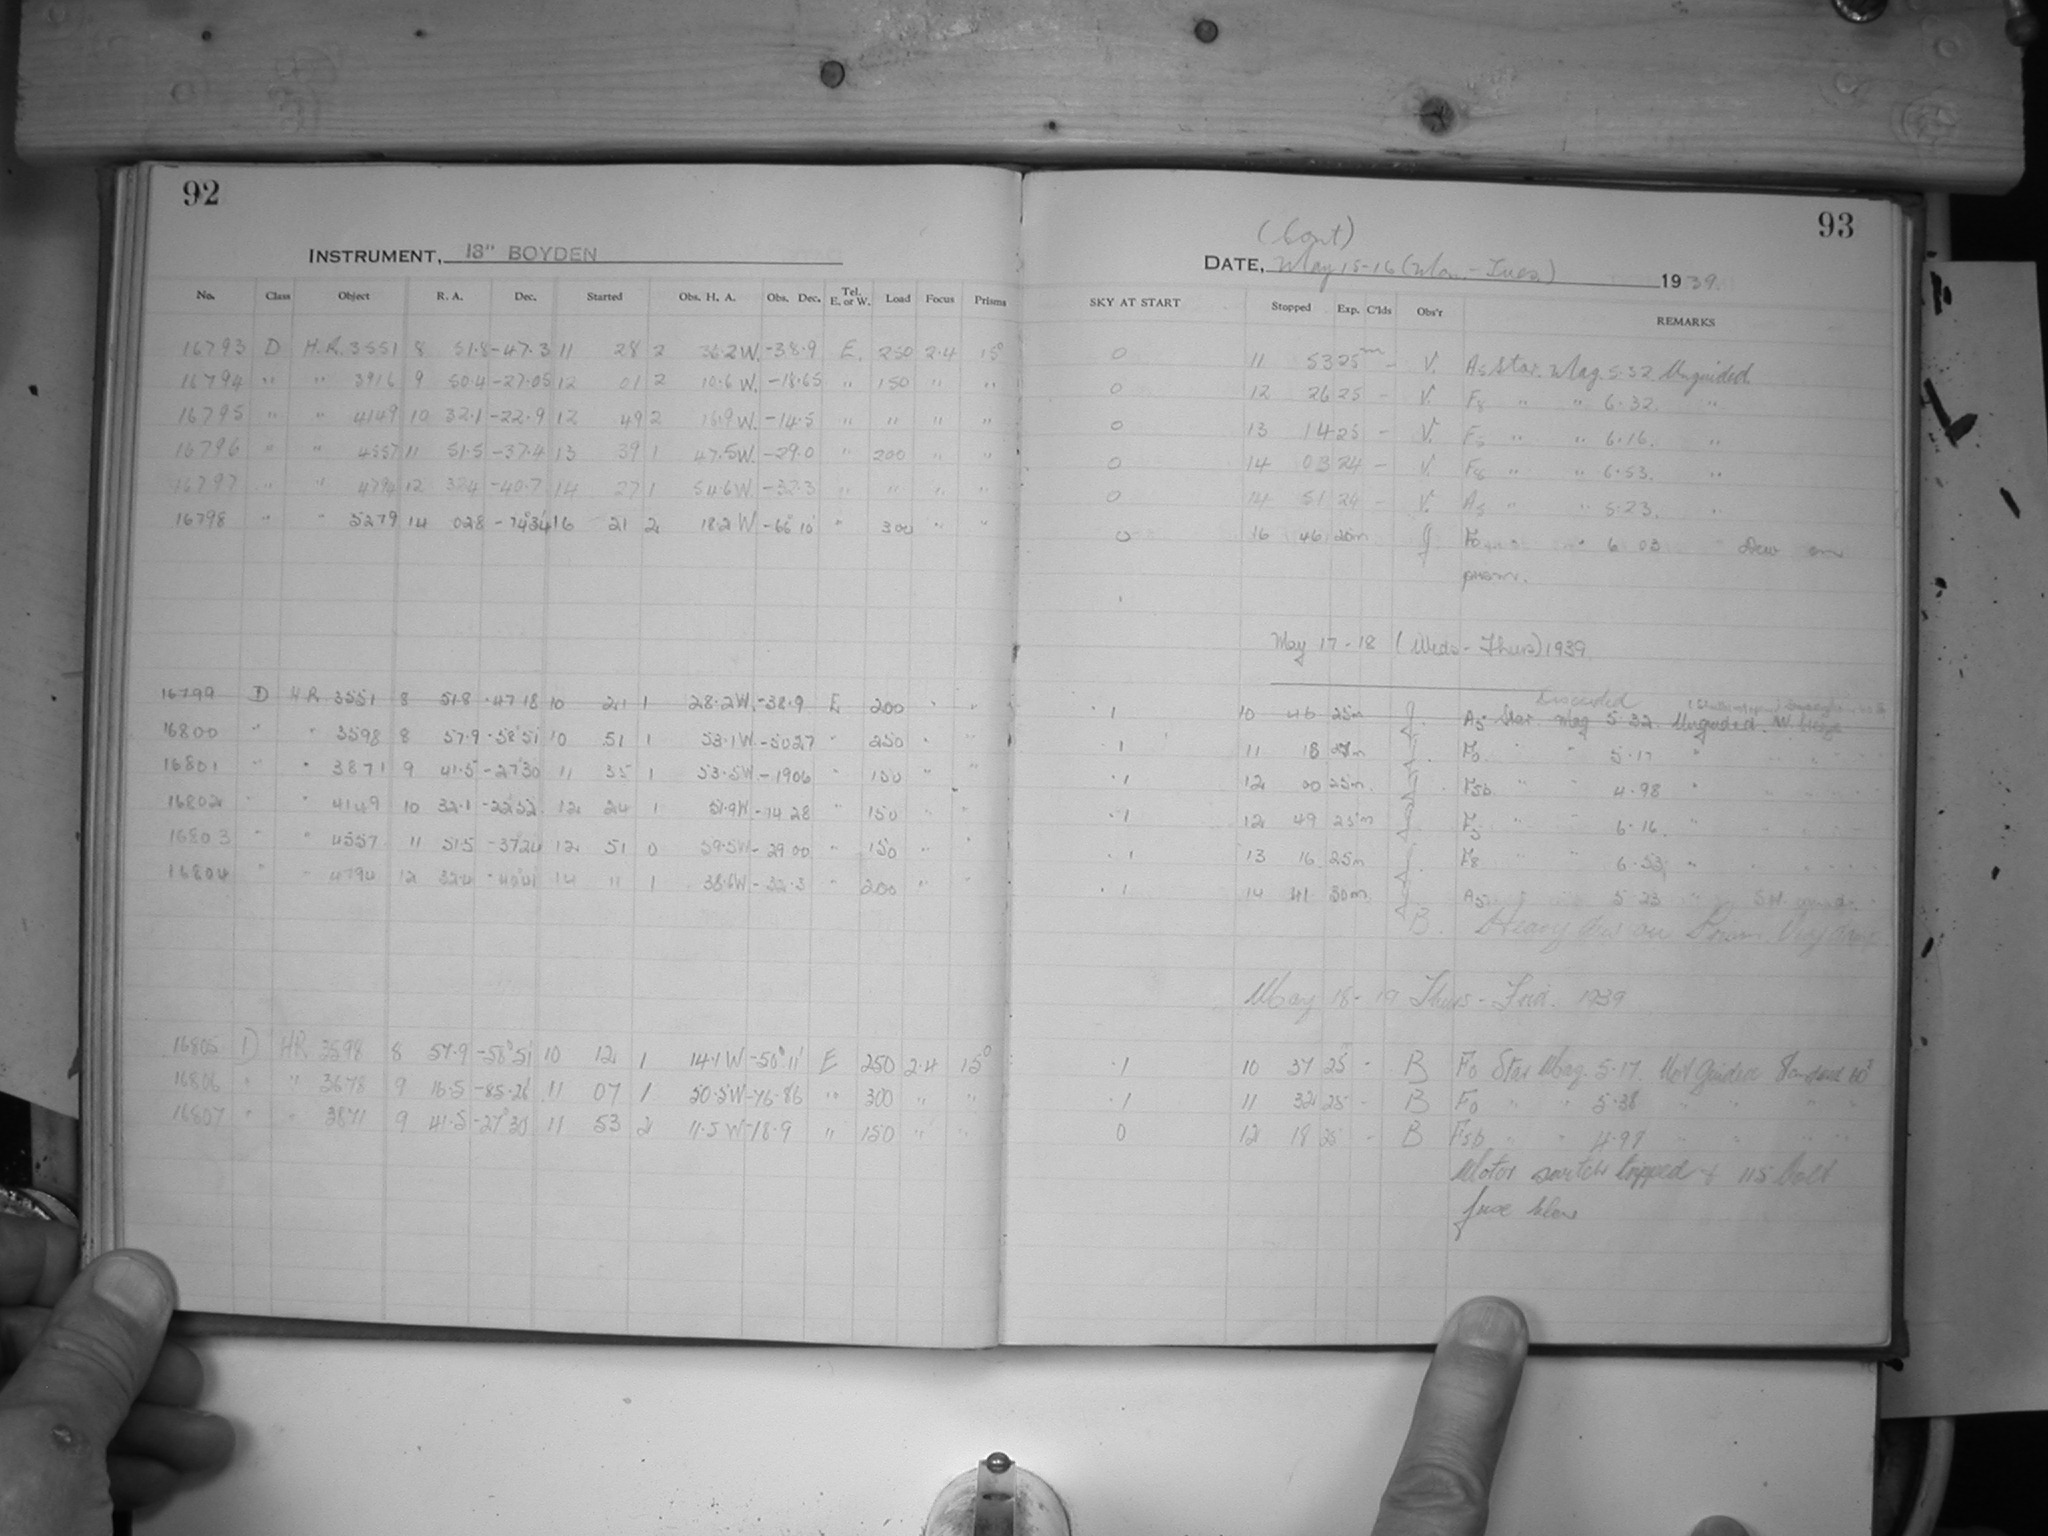 92
INSTRUMENT, 13" BOYDEN
No. Class Object R. A. Dec. Started Obs. H. A. Obs. Dec. Tel. E. or W. Load Focus Prisms
16793 D H.R. 3551 8 51.8 -47.3 11 28 2 36.2 W. -38.9 E. 250 2.4 15°
16794 " " 3916 9 50.4 -27.05 12 01 2 10.6 W. -18.65 " 150 " "
16795 " " 4149 10 32.1 -22.9 12 49 2 16.9 W. -14.5 " " " "
16796 " " 4557 11 51.5 -37.4 13 39 1 47.5 W. -29.0 " 200 " "
16797 " " 4794 12 32.4 -40.7 14 27 1 54.6 W. -32.3 " " " "
16798 " " 5279 14 02.8 -74°34' 16 21 2 18.2 W -66° 10' " 300 " "
16799 D H R 3551 8 51.8 -47 18 10 21 1 28.2 W. -38.9 E 200 " "
16800 " " 3598 8 57.9 -58°51' 10 51 1 53.1 W -5027 " 250 " "
16801 " " 3871 9 41.5 -27°30 11 35 1 53.5 W -1906 " 150 " "
16802 " " 4149 10 32.1 -22°52' 12 24 1 51.9 W -14 28 " 150 " "
16803 " " 4557 11 51.5 -37 24 12 51 0 59.5 W -29 00 " 150 " "
16804 " " 4794 12 32.4 -40 41 14 11 1 38.6 W -32.3 " 200 " "
16805 D HR 3598 8 57.9 -58° 51' 10 12 1 14.1 W -50° 11' E 250 2.4 15°
16806 " " 3678 9 16.5 -85.26 11 07 1 20.5 W -76.86 " 300 " "
16807 " " 3871 9 41.5 -27° 30' 11 53 2 11.5 W -18.9 " 150 " "
93
(Cont)
DATE, May 15-16 (Mon. - Tues) 1939.
SKY AT START Stopped Exp. C'lds Obs'r REMARKS
0 11 53 25m - V. A5 Star. Mag. 5.32 Unguided.
0 12 26 25 - V. F8 " " 6.32. "
0 13 14 25 - V. F5 " " 6.16. "
0 14 03 24 - V. F8 " " 6.53. "
0 14 51 24 - V. A5 " " 5.23. "
0 16 46 25m J. F0 " " 6 03 " Dew on
prism.
May 17-18 (Weds - Thurs) 1939.
Discarded
.1 10 46 25m J. A5 Star Mag 5.32. Unguided.
.1 11 18 27m J. F0 " " 5.17 "
.1 12 00 25m. J. F5b " " 4.98 "
.1 12 49 25m J. F5 " " 6.16. "
.1 13 16 25m J. F8 " " 6.53. "
.1 14 41 30m J. A5 " " 5 23 "
B. Heavy Dew on Prism.
May 18-19 Thurs - Frid. 1939
.1 10 37 25 - B F0 Star Mag. 5.17. Not Guided
.1 11 32 25 - B F0 " " 5.38 " " " "
0 12 18 25 - B F5b " " 4.97 " " " "
Motor switch tripped + 115 Volt
fuse blew